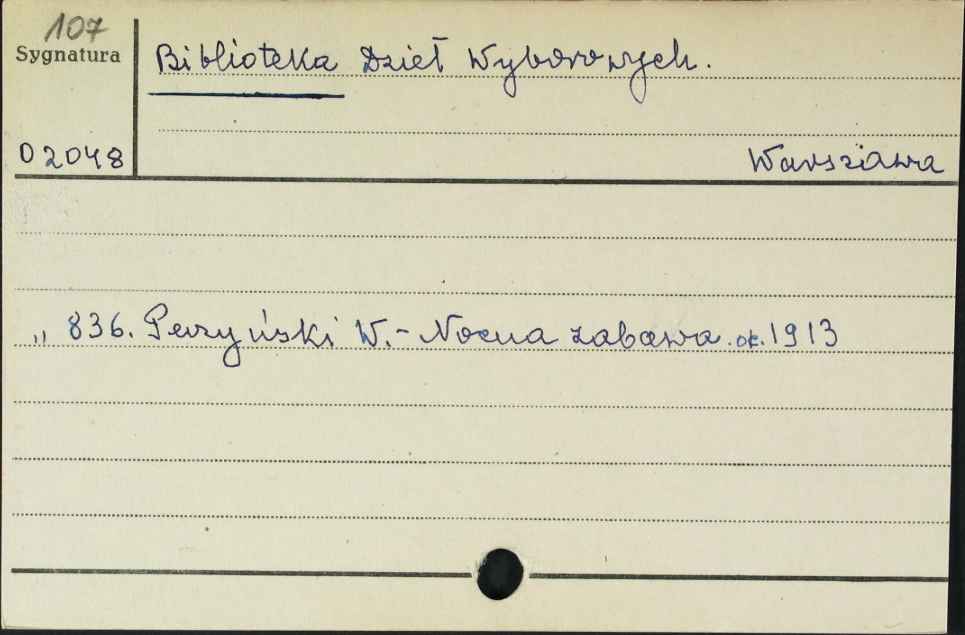 107
Sygnatura
Biblioteka Dzieł Wyborowych.
02048
Warszawa
„ 836. Perzyński W. - Nocna zabawa. ok. 1913